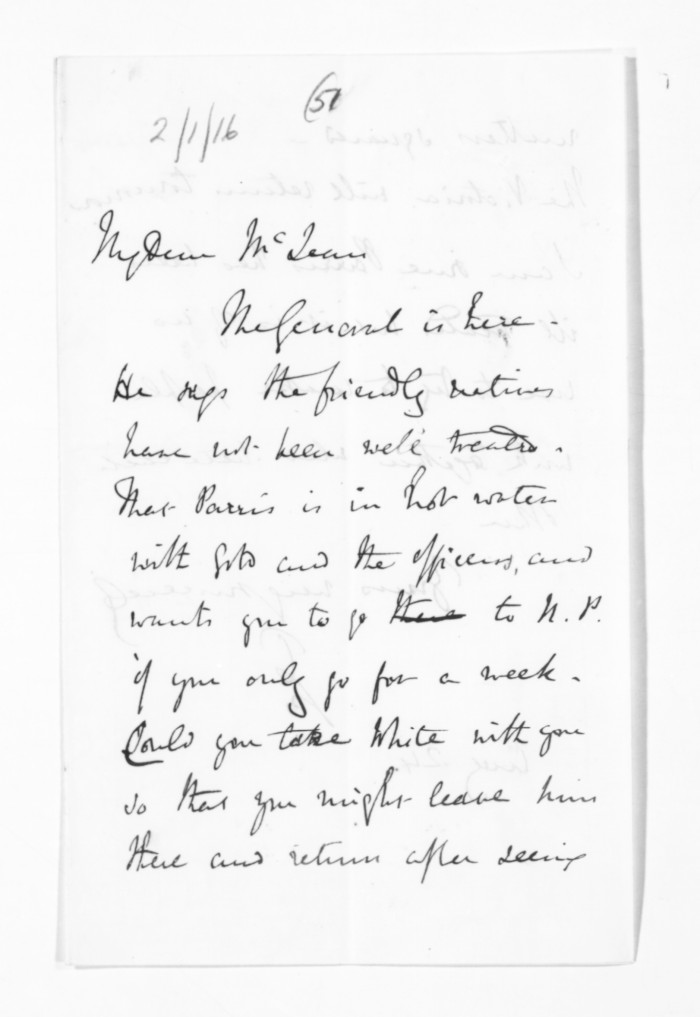 (51
2/1/16
My dear McLean
The General is here -
He says the friendly natives
have not been well treated.
That Parris is in hot water
with Gold and the officers, and
wants you to go there to N.P.
if you only go for a week.
Could you take White with you
so that you might leave him
there and return after seeing